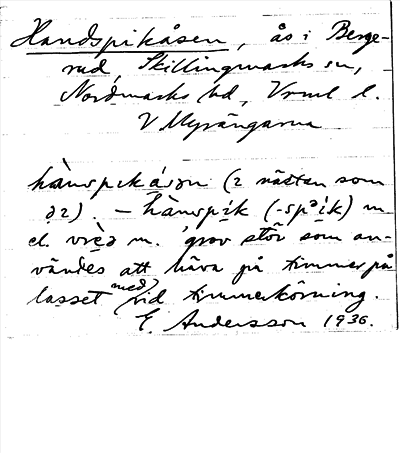 Handspikåsen, ås i Berge-
rud, Skillingmarks sn,
Nordmarks hd, Vrml l.
V Myrängarna
hànspɩk å̀sən (ɩ nästan som
). – hànspík (-spᵊík) m
el. m. 'grov stör som an-
vändes att häva på timmer på
lasset med vid timmerkörning.
E. Andersson 1936.